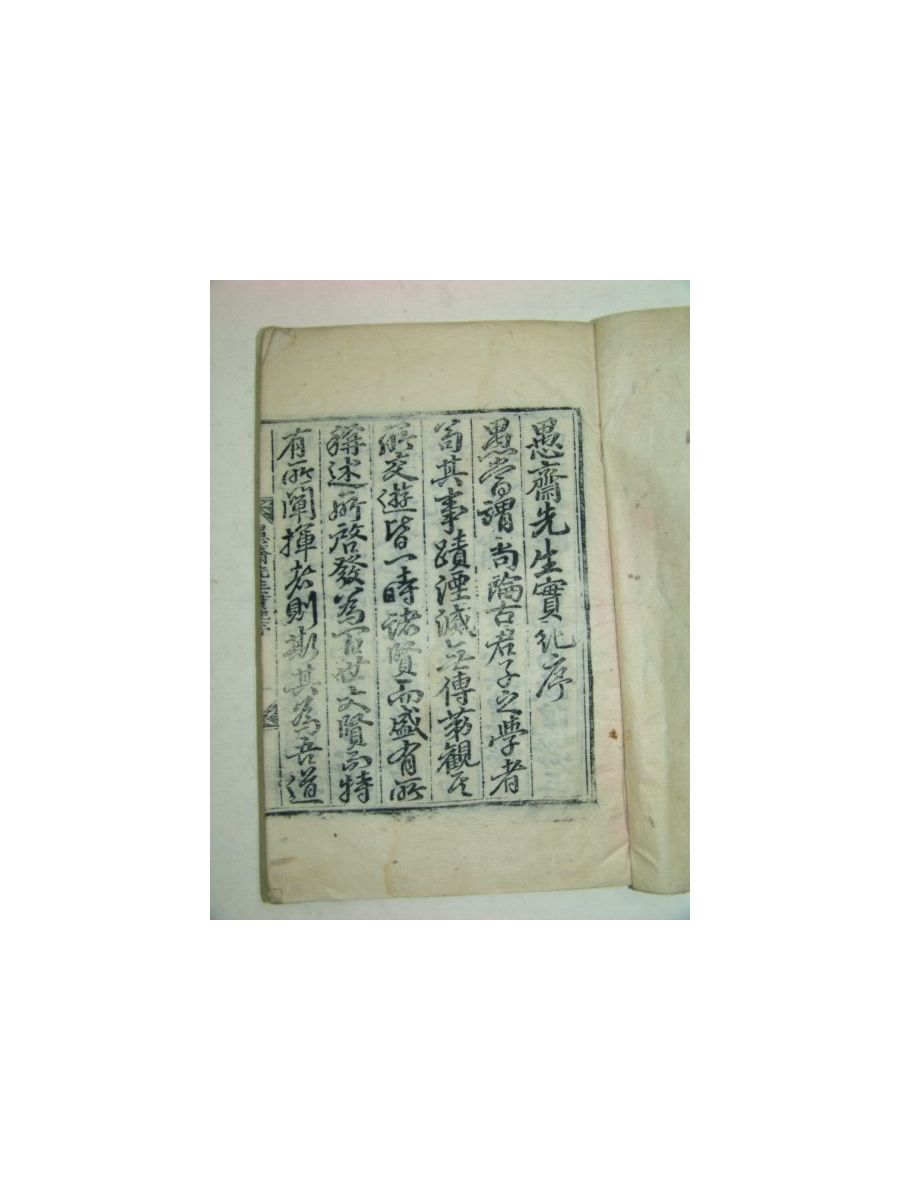 愚齋先生實紀序
愚嘗謂尚論古君子之學者
苟其事蹟湮滅無傳第觀其
所交遊皆一時諸賢而盛有所
稱述所啓發為百世文賢而特
有所闡揮者則斯其為吾道
愚齋先生實紀序